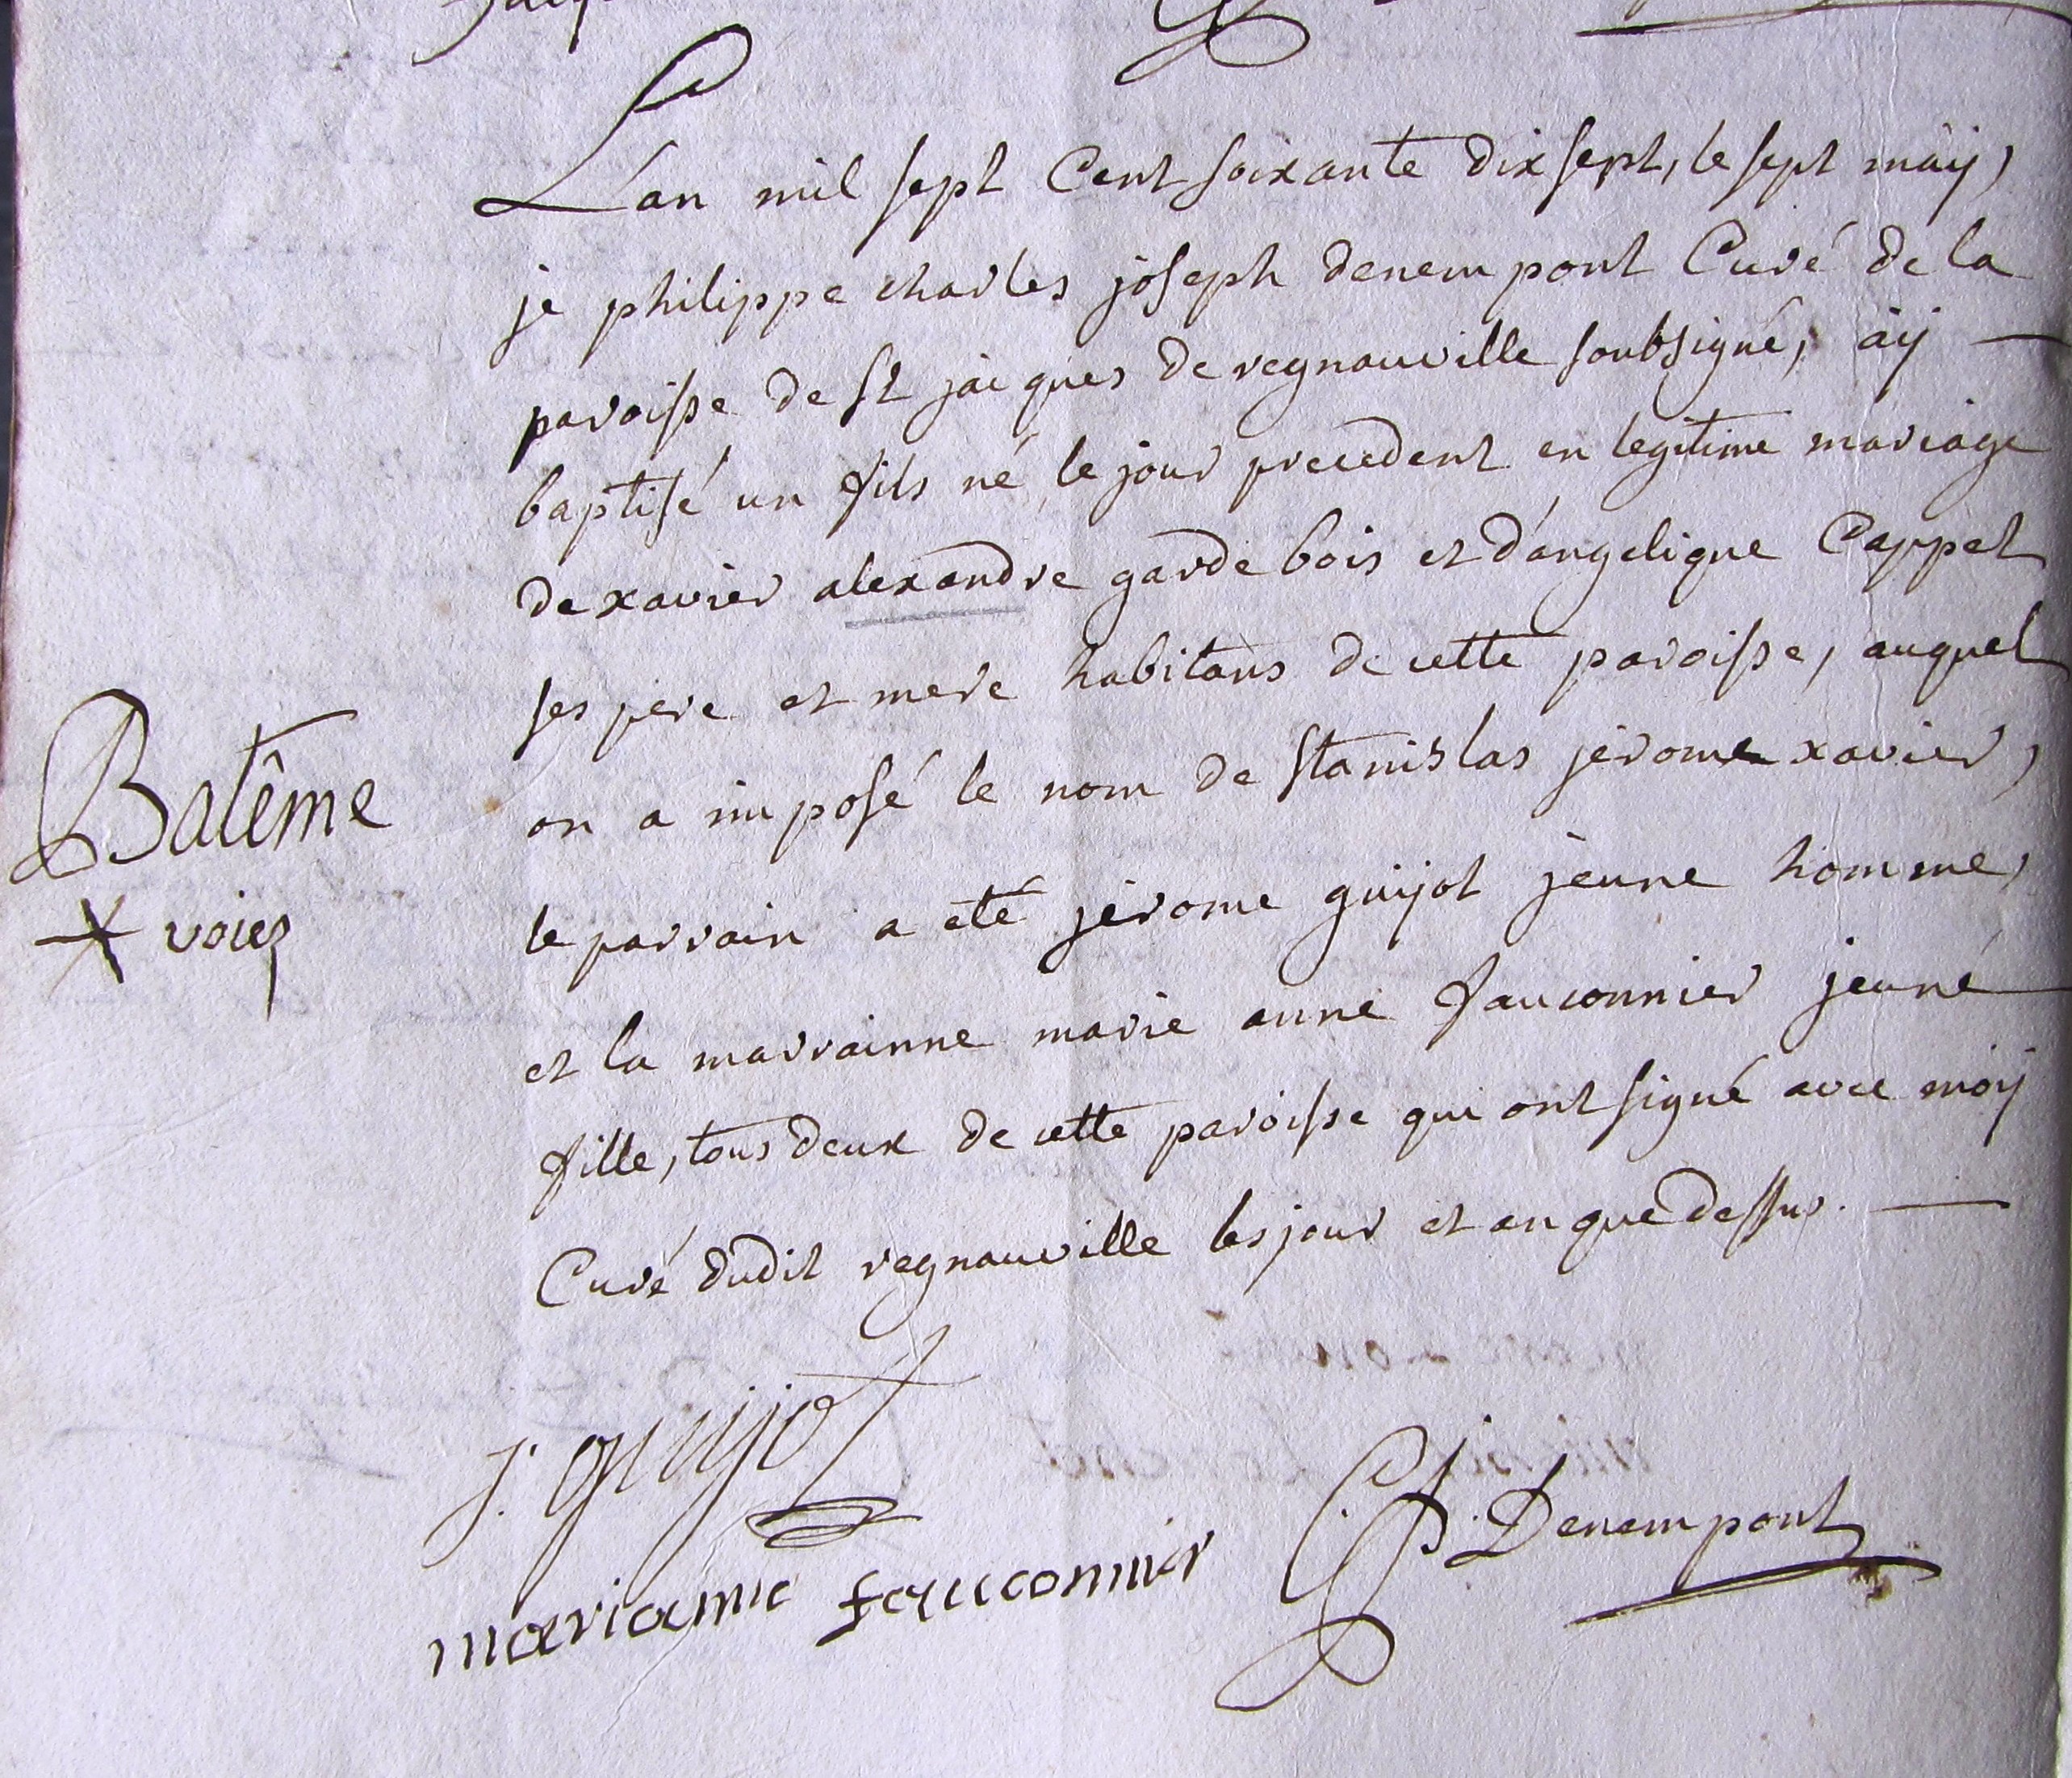 L'an mil sept Cent soixante dix sept, le sept maÿ,
je philippe charles joseph denempont Curé de la
paroisse de St jacques de regnauville soubsigné, aÿ
baptisé un fils né le jour precedent en legitime mariage
de xavier alexandre garde bois et d'angelique Cappet
ses pere et mere habitans de cette paroisse, auquel
Batême
on a imposé le nom de stanislas jérome xavier,
* voiez
le parrain a été jérome guijot jeune homme,
et la marrainne marie anne fauconnier jeune
fille, tous deux de cette paroisse qui ont signé avec moÿ
Curé dudit regnauville les jour et an que dessus.
j. guijot
Denempont
marianne fauconnier